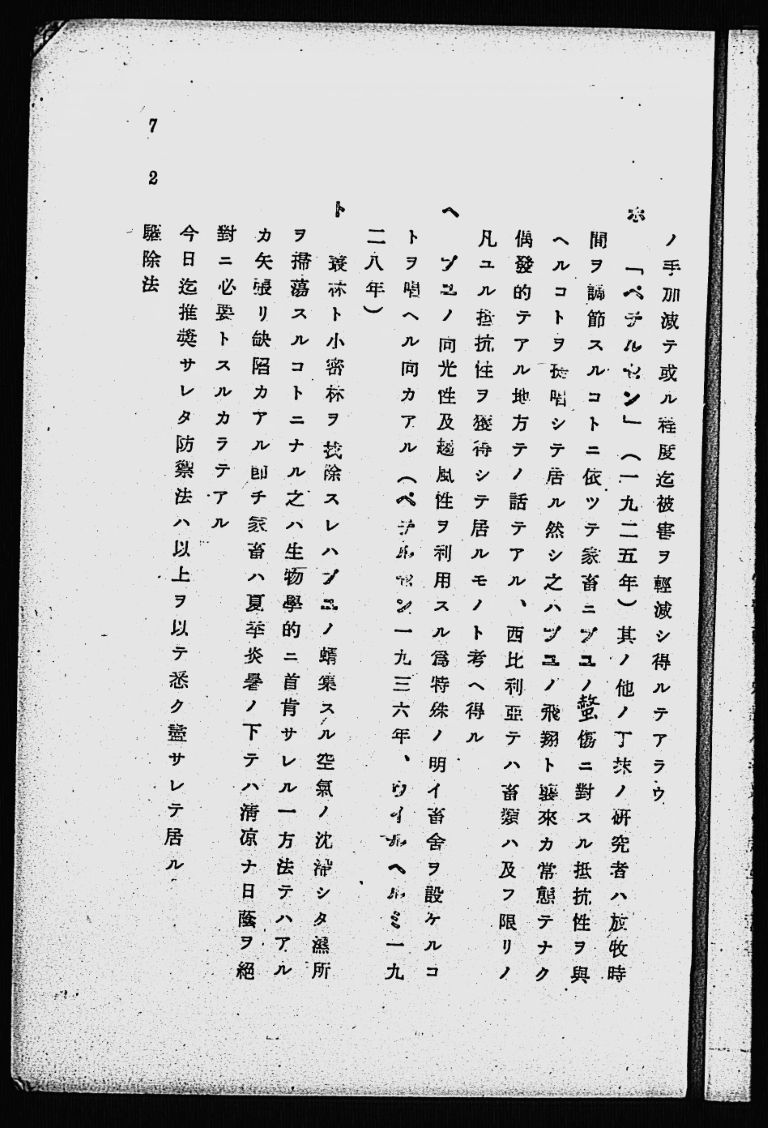 ノ手加減テ或ル程度迄被害ヲ輕減シ得ルテアラウ
ホ 「ペテルセン」（一九二五年）其ノ他ノ丁抹ノ研究者ハ放牧時
間ヲ調節スルコトニ依ツテ家畜ニブユノ螫傷ニ對スル抵抗性ヲ與
ヘルコトヲ提唱シテ居ル然シ之ハブユノ飛翔ト襲來カ常態テナク
偶發的テアル地方テノ話テアル、西比利亞テハ畜類ハ及フ限リノ
凡ユル抵抗性ヲ獲得シテ居ルモノト考ヘ得ル
ヘ ブユノ向光性及趨風性ヲ利用スル爲特殊ノ明イ畜舍ヲ設ケルコ
トヲ唱ヘル向カアル（ペテルセン一九三六年、ウイルヘルミ一九
二八年）
ト 叢林ト小密林ヲ伐除スレハブユノ蝟集スル空氣ノ沈滯シタ濕所
ヲ掃蕩スルコトニナル之ハ生物學的ニ首肯サレル一方法テハアル
カ矢張リ缺陷カアル卽チ家畜ハ夏季炎暑ノ下テハ清凉ナ日蔭ヲ絕
對ニ必要トスルカラテアル
今日迄推奬サレタ防禦法ハ以上ヲ以テ悉ク盡サレテ居ル
7 2 驅除法